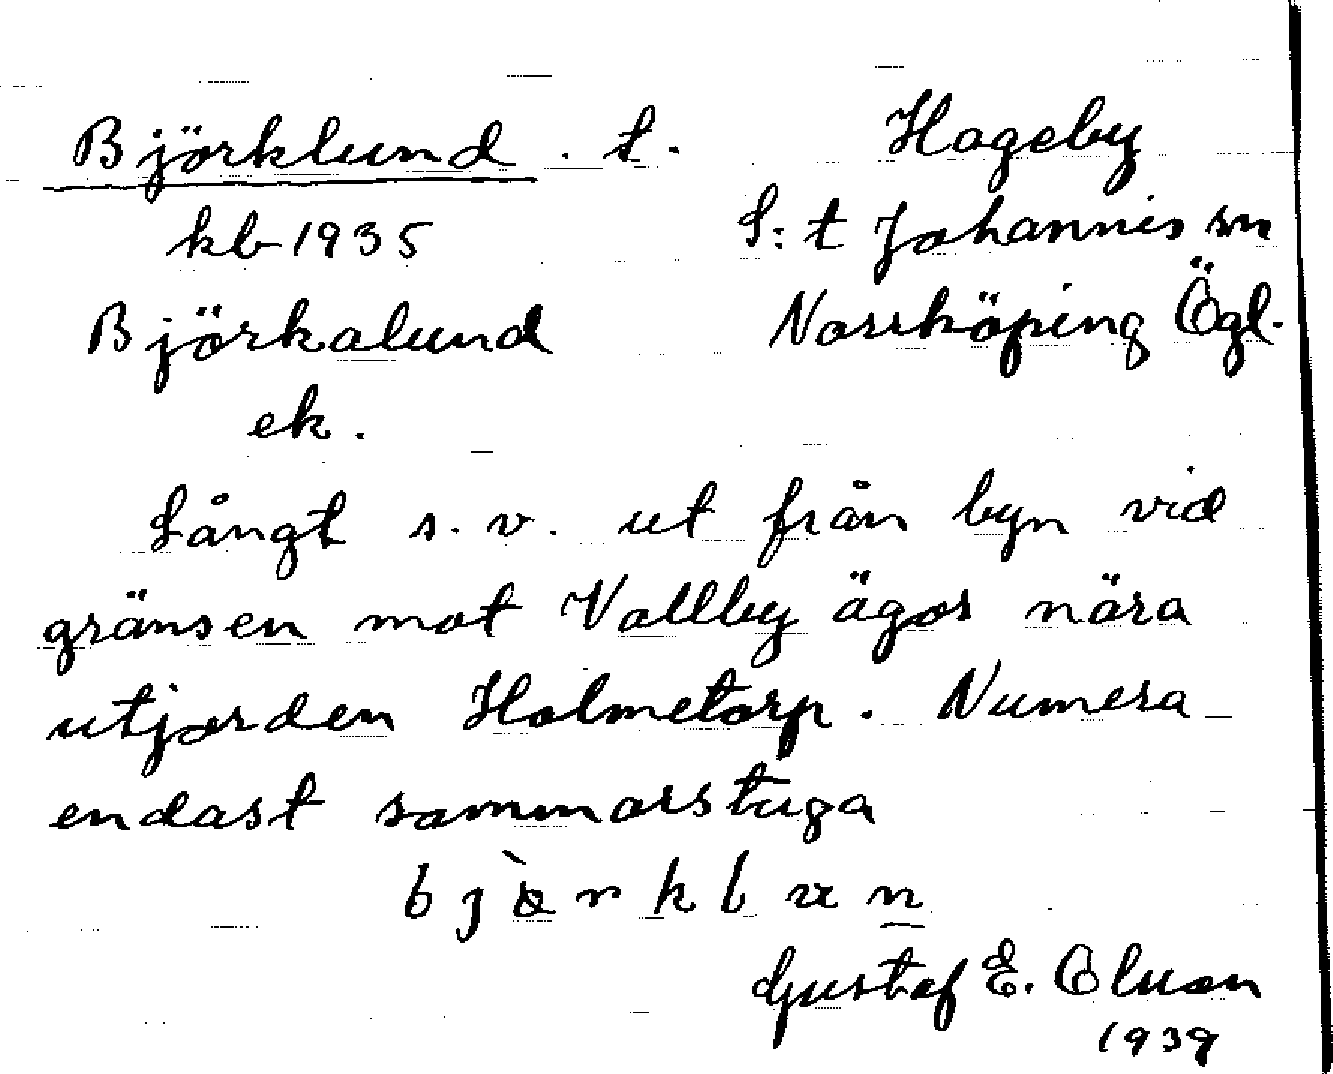 Björklund . t.
kb 1935
Björkalund
ek.
Hageby
S:t Johannis sn
Norrköping Ögl.
Långt s.v. ut från byn vid
gränsen mot Vallby ägor nära
utjorden Holmetorp. Numera
endast sommarstuga
Gustaf E. Olsson
1939